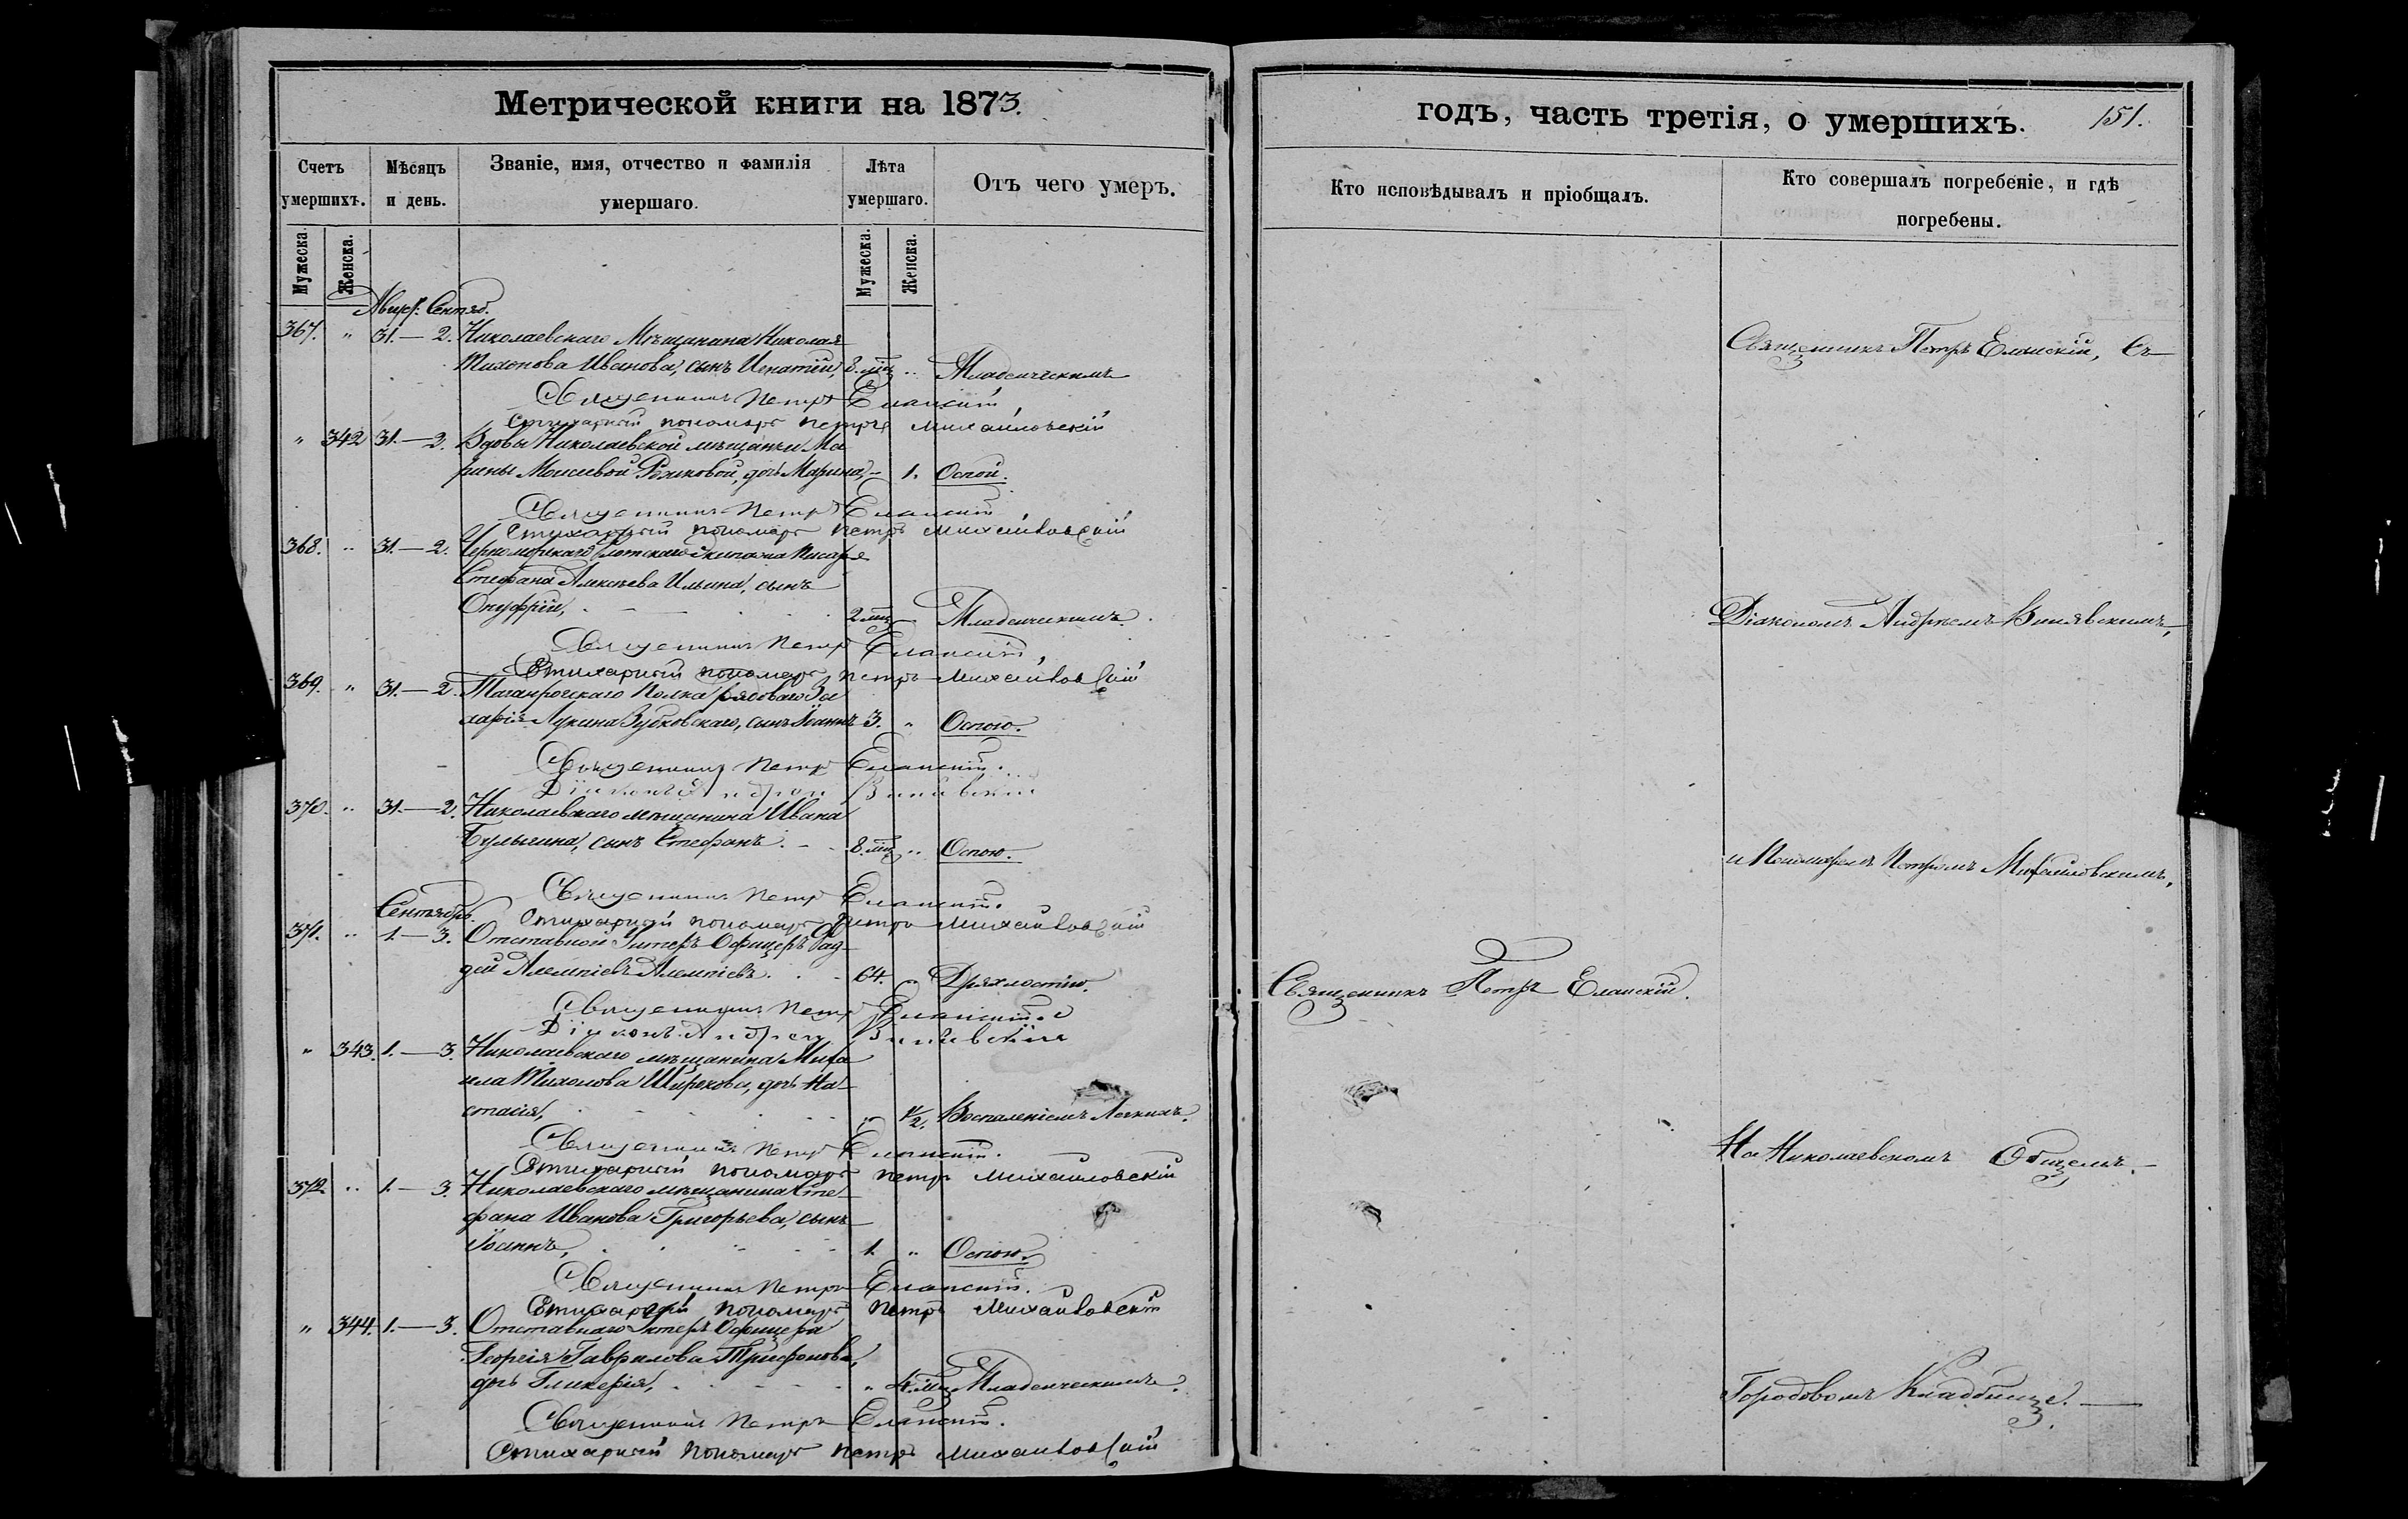 Метрической книги на 1873.
Счетъ умершихъ.
Мѣсяцъ и день.
Званіе, имя, отчество и фамилія умершаго.
Лѣта умершаго.
Отъ чего умеръ.
Мужеска.
Женска.
Мужеска.
Женска.
Август. Сентяб.
367. " 31.—2. Николаевскаго Мѣщанина Николая
Тихонова Иванова, сынъ Игнатій, 8. мц. " Младенческимъ
Священникъ Петръ Еланскій
Стихарный пономарь Петръ Михайловскій
" 342 31.—2. Вдовы Николаевской мѣщанки Ма
рины Моисеевой дочь Марина, — 1. Оспой.
Священникъ Петръ Еланскій
Стихарный пономарь Петръ Михайловскій
368. " 31.—2. Черноморскаго флотскаго Экипажа Писаря
Стефана Алексѣева Ильина, сынъ
Онуфрій, 2 мц Младенческимъ.
Священникъ Петръ Еланскій
Стихарный пономарь Петръ Михайловскій
369. " 31.—2. Таганрогскаго Полка рядоваго Ила
ларія Лукина Зубковскаго, сынъ Іоаннъ 3. " Оспою.
Священникъ Петръ Еланскій.
Діаконъ Андрей Винявскій
370. " 31.—2. Николаевскаго мѣщанина Ивана
Булыгина, сынъ Стефанъ. 8. мц " Оспою.
Священникъ Петръ Еланскій.
Стихарный пономарь Петръ Михайловскій
Сентябрь.
371. " 1.—3. Отставной Унтеръ Офицеръ Фад
дей Алемпіевъ Алемпіевъ. 64. " Дряхлостію.
Священникъ Петръ Еланскій
Діаконъ Андрей Винявскій
" 343. 1.—3. Николаевскаго мѣщанина Миха
ила Тихонова Широкова, дочь На
стасія, " 1/2. Воспаленіемъ Легкихъ.
Священникъ Петръ Еланскій.
Стихарный пономарь Петръ Михайловскій
372. " 1.—3. Николаевскаго мѣщанина Сте
фана Иванова Григорьева, сынъ
Іоаннъ, 1. " Оспою.
Священникъ Петръ Еланскій.
Стихарный пономарь Петръ Михайловскій
" 344. 1.—3. Отставнаго Унтеръ Офицера
Георгія Гаврилова Трифонова,
дочь Гликерія, " 4. мц Младенческимъ.
Священникъ Петръ Еланскій.
Стихарный пономарь Петръ Михайловскій
годъ, часть третія, о умершихъ. 151.
Кто исповѣдывалъ и пріобщалъ.
Кто совершалъ погребеніе, и гдѣ погребены.
Священникъ Петръ Еланскій, Съ
Діакономъ Андреемъ Винявскимъ,
и Пономаремъ Петромъ Михайловскимъ,
Священникъ Петръ Еланскій.
На Николаевскомъ Общемъ
Городовомъ Кладбищѣ.